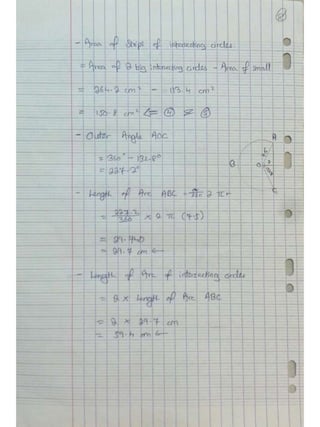 8
- Area of Strips of intersecting circles
= Area of 2 big intersecting circles - Area of small
= 264.2 cm² - 113.4 cm²
= 150.8 cm² ⇐ ④ ⑤
- Outer Angle AOC
= 360° - 132.8°
= 227.2°
A
B
O
C
- Length of Arc ABC = 2πr
= 227.2/360 × 2 π (7.5)
= 29.740
= 29.7 cm ←
- Length of Arc of intersecting circles
= 2 × Length of Arc ABC
= 2 × 29.7 cm
= 59.4 cm ←